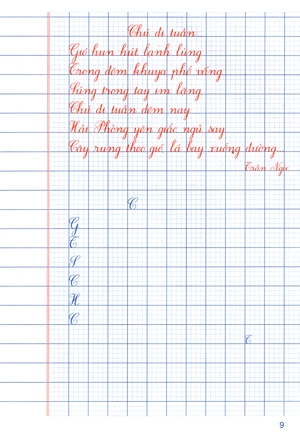 Chú đi tuần
Gió hun hút lạnh lùng
Trong đêm khuya phố vắng
Súng trong tay im lặng
Chú đi tuần đêm nay
Hải Phòng yên giấc ngủ say
Cây rung theo gió lá bay xuống đường...
Trần Ngọc
C
G
T
S
C
H
C
T
9